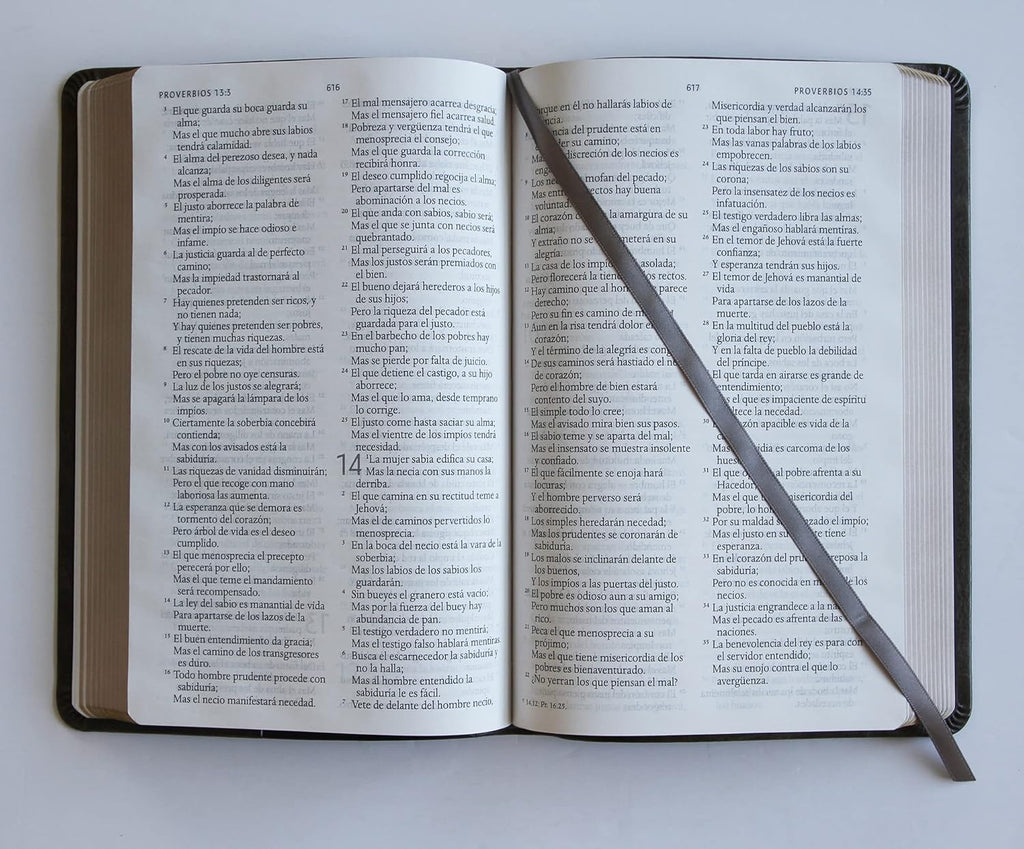 PROVERBIOS 13:3
616
3 El que guarda su boca guarda su
alma;
Mas el que mucho abre sus labios
tendrá calamidad.
4 El alma del perezoso desea, y nada
alcanza;
Mas el alma de los diligentes será
prosperada.
5 El justo aborrece la palabra de
mentira;
Mas el impío se hace odioso e
infame.
6 La justicia guarda al de perfecto
camino;
Mas la impiedad trastornará al
pecador.
7 Hay quienes pretenden ser ricos, y
no tienen nada;
Y hay quienes pretenden ser pobres,
y tienen muchas riquezas.
8 El rescate de la vida del hombre está
en sus riquezas;
Pero el pobre no oye censuras.
9 La luz de los justos se alegrará;
Mas se apagará la lámpara de los
impíos.
10 Ciertamente la soberbia concebirá
contienda;
Mas con los avisados está la
sabiduría.
11 Las riquezas de vanidad disminuirán;
Pero el que recoge con mano
laboriosa las aumenta.
12 La esperanza que se demora es
tormento del corazón;
Pero árbol de vida es el deseo
cumplido.
13 El que menosprecia el precepto
perecerá por ello;
Mas el que teme el mandamiento
será recompensado.
14 La ley del sabio es manantial de vida
Para apartarse de los lazos de la
muerte.
15 El buen entendimiento da gracia;
Mas el camino de los transgresores
es duro.
16 Todo hombre prudente procede con
sabiduría;
Mas el necio manifestará necedad.
17 El mal mensajero acarrea desgracia;
Mas el mensajero fiel acarrea salud.
18 Pobreza y vergüenza tendrá el que
menosprecia el consejo;
Mas el que guarda la corrección
recibirá honra.
19 El deseo cumplido regocija el alma;
Pero apartarse del mal es
abominación a los necios.
20 El que anda con sabios, sabio será;
Mas el que se junta con necios será
quebrantado.
21 El mal perseguirá a los pecadores,
Mas los justos serán premiados con
el bien.
22 El bueno dejará herederos a los hijos
de sus hijos;
Pero la riqueza del pecador está
guardada para el justo.
23 En el barbecho de los pobres hay
mucho pan;
Mas se pierde por falta de juicio.
24 El que detiene el castigo, a su hijo
aborrece;
Mas el que lo ama, desde temprano
lo corrige.
25 El justo come hasta saciar su alma;
Mas el vientre de los impíos tendrá
necesidad.
14 1 La mujer sabia edifica su casa;
Mas la necia con sus manos la
derriba.
2 El que camina en su rectitud teme a
Jehová;
Mas el de caminos pervertidos lo
menosprecia.
3 En la boca del necio está la vara de la
soberbia;
Mas los labios de los sabios los
guardarán.
4 Sin bueyes el granero está vacío;
Mas por la fuerza del buey hay
abundancia de pan.
5 El testigo verdadero no mentirá;
Mas el testigo falso hablará mentiras.
6 Busca el escarnecedor la sabiduría y
no la halla;
Mas al hombre entendido la
sabiduría le es fácil.
7 Vete de delante del hombre necio,
617
PROVERBIOS 14:35
en él no hallarás labios de
del prudente está en
su camino;
de los necios es
9 Los mofan del pecado;
Mas hay buena
10 El corazón la amargura de su
alma;
Y extraño no se en su
alegría.
11 La casa de los asolada;
Pero florecerá la rectos.
12 Hay camino que al parece
derecho;
Pero su fin es camino de
13 Aun en la risa tendrá dolor
corazón;
Y el término de la alegría es
14 De sus caminos será hastiado el
de corazón;
Pero el hombre de bien estará
contento del suyo.
15 El simple todo lo cree;
Mas el avisado mira bien sus pasos.
16 El sabio teme y se aparta del mal;
Mas el insensato se muestra insolente
y confiado.
17 El que fácilmente se enoja hará
locuras;
Y el hombre perverso será
aborrecido.
18 Los simples heredarán necedad;
Mas los prudentes se coronarán de
sabiduría.
19 Los malos se inclinarán delante de
los buenos,
Y los impíos a las puertas del justo.
20 El pobre es odioso aun a su amigo;
Pero muchos son los que aman al
rico.
21 Peca el que menosprecia a su
prójimo;
Mas el que tiene misericordia de los
pobres es bienaventurado.
22 ¿No yerran los que piensan el mal?
14.12: Pr. 16.25.
Misericordia y verdad alcanzarán los
que piensan el bien.
23 En toda labor hay fruto;
Mas las vanas palabras de los labios
empobrecen.
24 Las riquezas de los sabios son su
corona;
Pero la insensatez de los necios es
infatuación.
25 El testigo verdadero libra las almas;
Mas el engañoso hablará mentiras.
26 En el temor de Jehová está la fuerte
confianza;
Y esperanza tendrán sus hijos.
27 El temor de Jehová es manantial de
vida
Para apartarse de los lazos de la
muerte.
28 En la multitud del pueblo está la
gloria del rey;
Y en la falta de pueblo la debilidad
del príncipe.
El que tarda en airarse es grande de
entendimiento;
el que es impaciente de espíritu
la necedad.
30 apacible es vida de la
Mas es carcoma de los
31 El que al pobre afrenta a su
Hacedor
Mas el que misericordia del
pobre, lo
32 Por su maldad el impío;
Mas el justo en su tiene
esperanza.
33 En el corazón del reposa la
sabiduría;
Pero no es conocida en de los
necios.
34 La justicia engrandece a la
Mas el pecado es afrenta de las
naciones.
35 La benevolencia del rey es para con
el servidor entendido;
Mas su enojo contra el que lo
avergüenza.